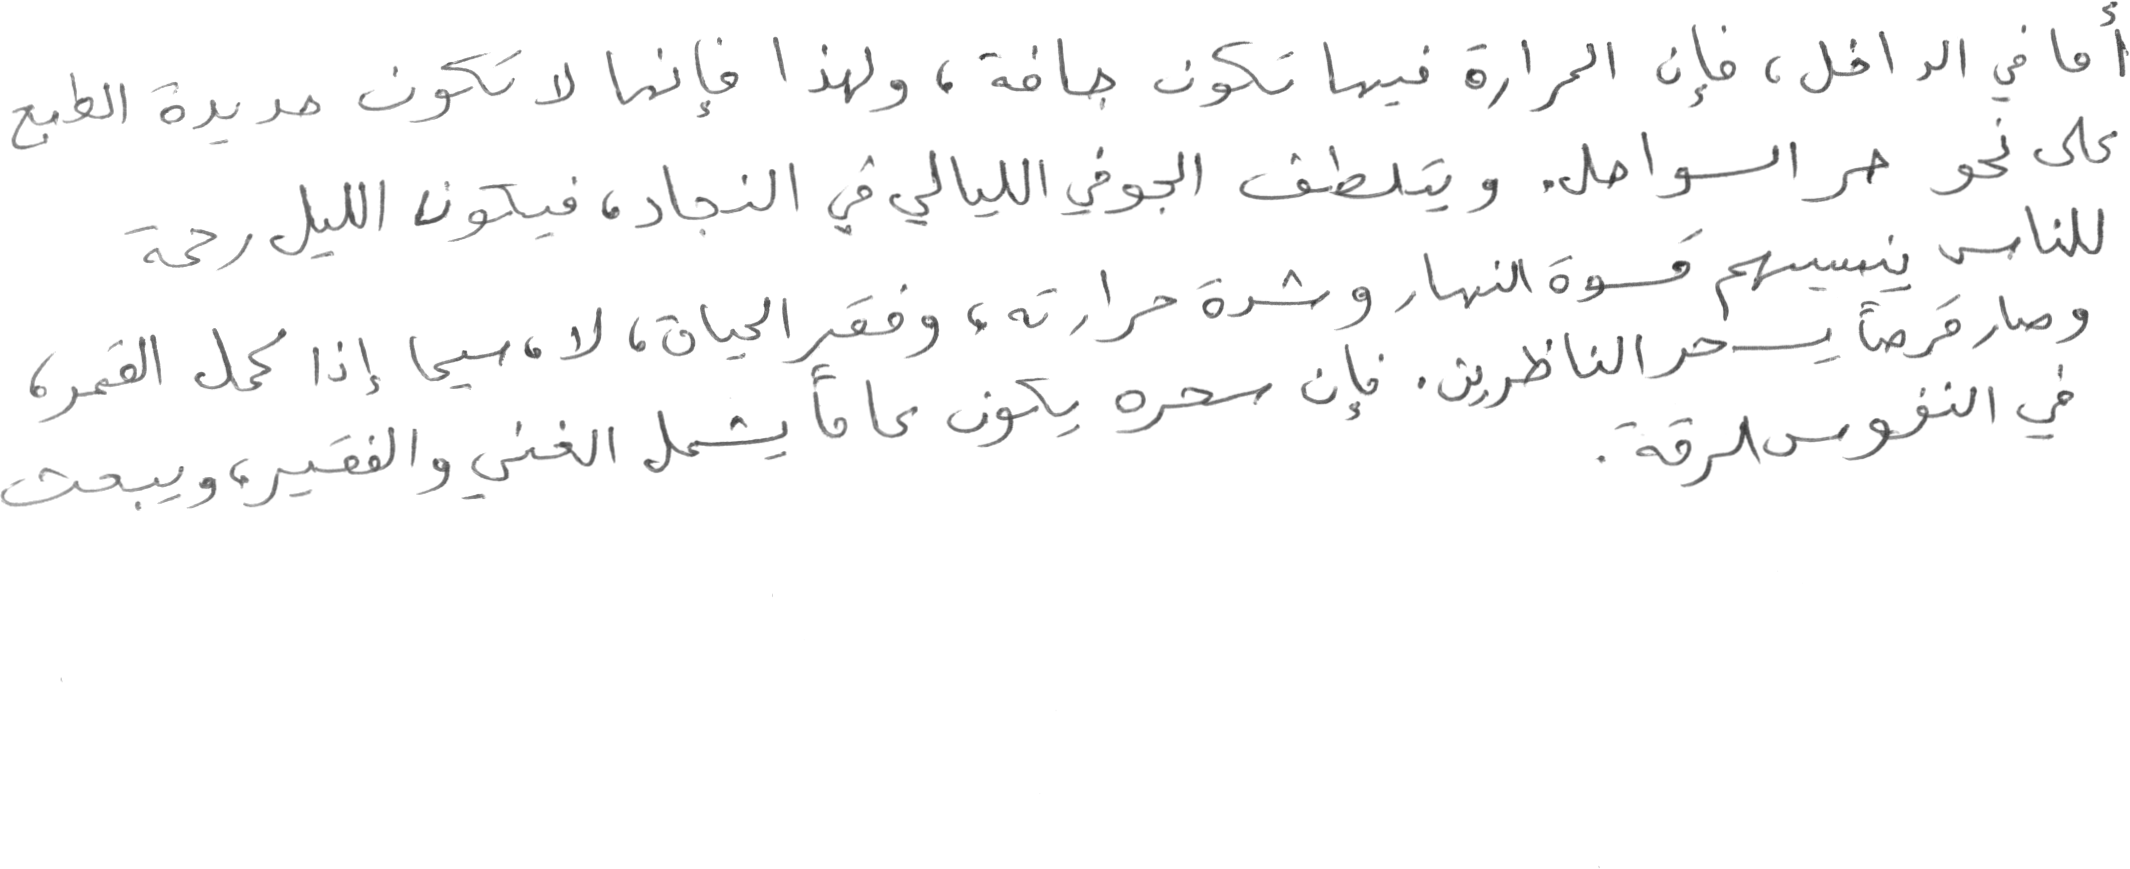 أما في الداخل، فإن الحرارة فيها تكون جافة، ولهذا فإنها لا تكون حديدة الطبع
على نحو حر السواحل. ويتلطف الجو في الليالي في النجاد، فيكون الليل رحمة
للناس ينسيهم قسوة النهار وشدة حرارته، وفقر الحياة، لا، سيما إذا كمل القمر،
وصار قرصاً يسحر الناظرين. فإن سحره يكون عاماً يشمل الغني والفقير، ويبعث
في النفوس الرقة.